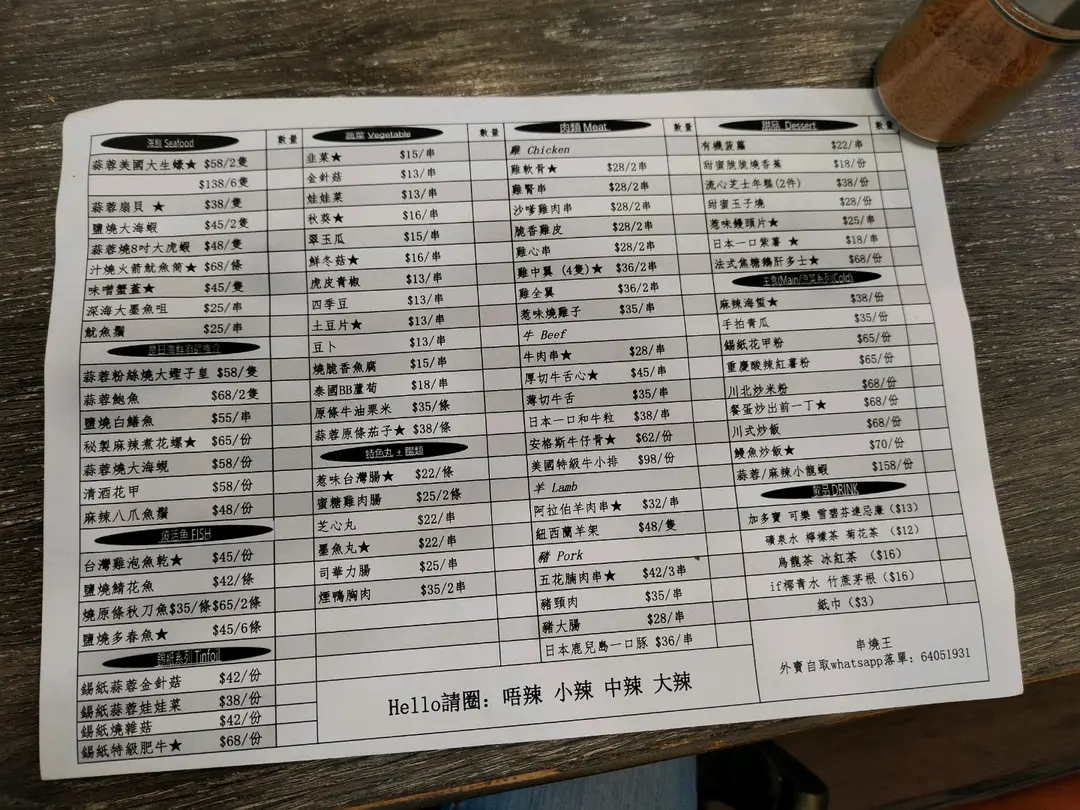 海鮮 Seafood 數量
蒜蓉美國大生蠔★ $58/2隻
$138/6隻
蒜蓉扇貝 ★ $38/隻
鹽燒大海蝦 $45/2隻
蒜蓉燒8吋大虎蝦 $48/隻
汁燒火箭魷魚筒★ $68/條
味噌蟹蓋★ $45/隻
深海大墨魚咀 $25/串
魷魚鬚 $25/串
是日海鮮廚師推介
蒜蓉粉絲燒大蟶子皇 $58/隻
蒜蓉鮑魚 $68/2隻
鹽燒白鱔魚 $55/串
秘製麻辣煮花螺★ $65/份
蒜蓉燒大海蜆 $58/份
清酒花甲 $58/份
麻辣八爪魚鬚 $48/份
FISH
台灣雞泡魚乾★ $45/份
鹽燒鯖花魚 $42/條
燒原條秋刀魚$35/條$65/2條
鹽燒多春魚★ $45/6條
錫紙系列 Tinfoil
錫紙蒜蓉金針菇 $42/份
錫紙蒜蓉娃娃菜 $38/份
錫紙燒雜菇 $42/份
錫紙特級肥牛★ $68/份
蔬菜 Vegetable 數量
韭菜★ $15/串
金針菇 $13/串
娃娃菜 $13/串
秋葵★ $16/串
翠玉瓜 $15/串
鮮冬菇★ $16/串
虎皮青椒 $13/串
四季豆 $13/串
土豆片★ $13/串
豆卜 $13/串
燒脆香魚腐 $15/串
泰國BB蘆荀 $18/串
原條牛油粟米 $35/條
蒜蓉原條茄子★ $38/條
特色丸 + 腸類
惹味台灣腸★ $22/條
蜜糖雞肉腸 $25/2條
芝心丸 $22/串
墨魚丸★ $22/串
司華力腸 $25/串
煙鴨胸肉 $35/2串
肉類 Meat 數量
雞 Chicken
雞軟骨★ $28/2串
雞腎串 $28/2串
沙嗲雞肉串 $28/2串
脆香雞皮 $28/2串
雞心串 $28/2串
雞中翼 (4隻)★ $36/2串
雞全翼 $36/2串
惹味燒雞子 $35/串
牛 Beef
牛肉串★ $28/串
厚切牛舌心★ $45/串
薄切牛舌 $35/串
日本一口和牛粒 $38/串
安格斯牛仔骨★ $62/份
美國特級牛小排 $98/份
羊 Lamb
阿拉伯羊肉串★ $32/串
紐西蘭羊架 $48/隻
豬 Pork
五花腩肉串★ $42/3串
豬頸肉 $35/串
豬大腸 $28/串
日本鹿兒島一口豚 $36/串
甜品 Dessert 數量
有機菠蘿 $22/串
甜蜜脆脆燒香蕉 $18/份
流心芝士年糕(2件) $38/份
甜蜜玉子燒 $28/份
惹味饅頭片★ $25/串
日本一口紫薯 ★ $18/串
法式焦糖鵝肝多士★ $68/份
主食(Main)/涼菜系列(Cold)
麻辣海蜇★ $38/份
手拍青瓜 $35/份
錫紙花甲粉 $65/份
重慶酸辣紅薯粉 $65/份
川北炒米粉 $68/份
餐蛋炒出前一丁★ $68/份
川式炒飯 $68/份
鰻魚炒飯★ $70/份
蒜蓉/麻辣小龍蝦 $158/份
飲品 DRINK
加多寶 可樂 雪碧芬達忌廉($13)
礦泉水 檸檬茶 菊花茶 ($12)
烏龍茶 冰紅茶 ($16)
if椰青水 竹蔗茅根($16)
紙巾($3)
Hello請圈: 唔辣 小辣 中辣 大辣
串燒王
外賣自取whatsapp落單: 64051931